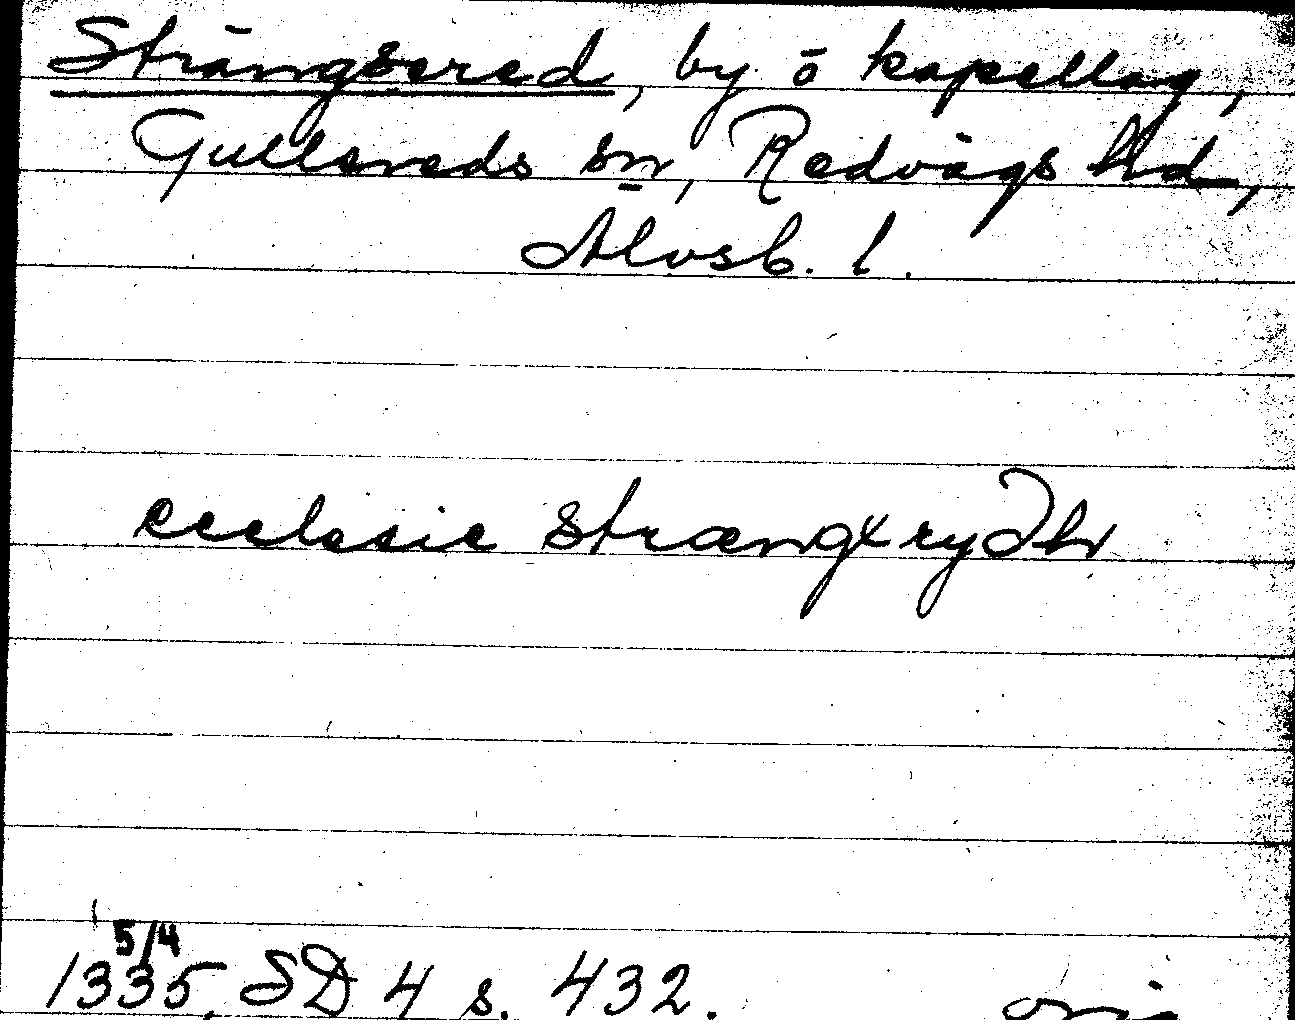 Strängsered, by o kapellag,
Gullereds sn, Redvägs hd,
Älvsb. l.
ecclesie strængxrydhr
5/4
1335, SD 4 s. 432. orig